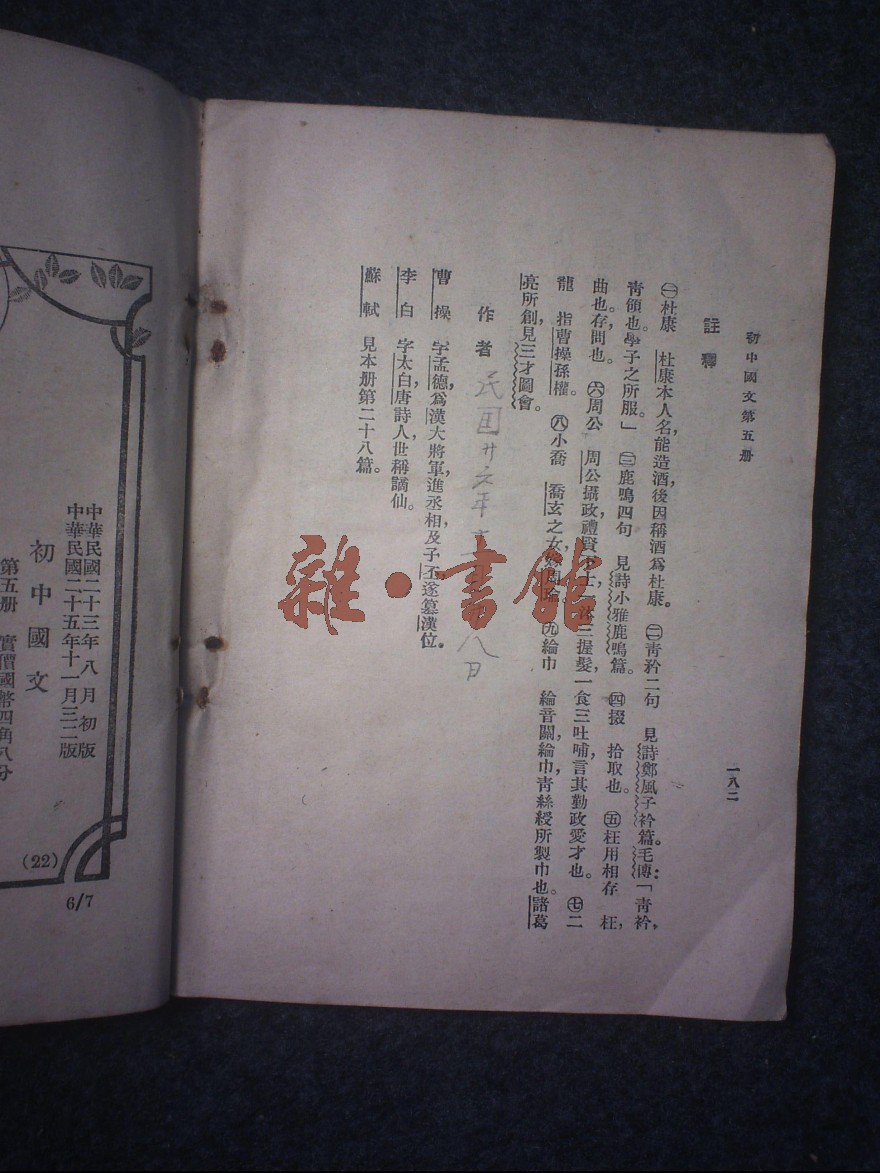 初中國文第五册
一八二
註釋
㊀杜康　杜康本人名，能造酒後因稱酒爲杜康。　㊁青衿二句　見詩鄭風子衿篇。毛傳：「青衿，
青領也。學子之所服。」　㊂鹿鳴四句　見詩小雅鹿鳴篇。　㊃掇　拾取也。　㊄枉用相存　枉，
曲也。存，問也。　㊅周公　周公攝政，禮賢下士，一沐三握髮，一食三吐哺，言其勤政愛才也。　㊆二
龍　指曹操孫權。　㊇小喬　喬玄之女，㊈綸巾　綸音關，綸巾，青絲綬所製巾也。諸葛
亮所創，見三才圖會。
作者
民國廿六年
八日
曹操　字孟德，爲漢大將軍，進丞相，及子丕遂篡漢位。
李白　字太白，唐詩人，世稱謫仙。
蘇軾　見本册第二十八篇。
雜·書館
中華民國二十三年八月初版
中華民國二十五年十一月三二版
初中國文
第五册　實價國幣四角八分
(22)
6/7